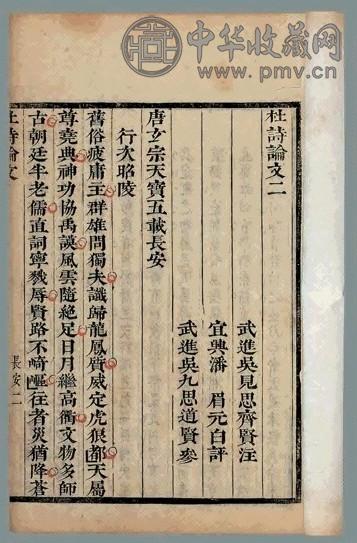 中华收藏网
pmv.cn
杜詩論文二
武進吳見思齊賢注
宜興潘 眉元白評
武進吳九思道賢參
唐玄宗天寶五載長安
行次昭陵
舊俗疲庸主群雄問獨夫讖歸龍鳳質威定虎狼都天屬
尊堯典神功協禹謨風雲隨絕足日月繼高衢文物多師
古朝廷半老儒直詞寧戮辱賢路不崎嶇往者災猶降蒼
杜詩論文 長安二